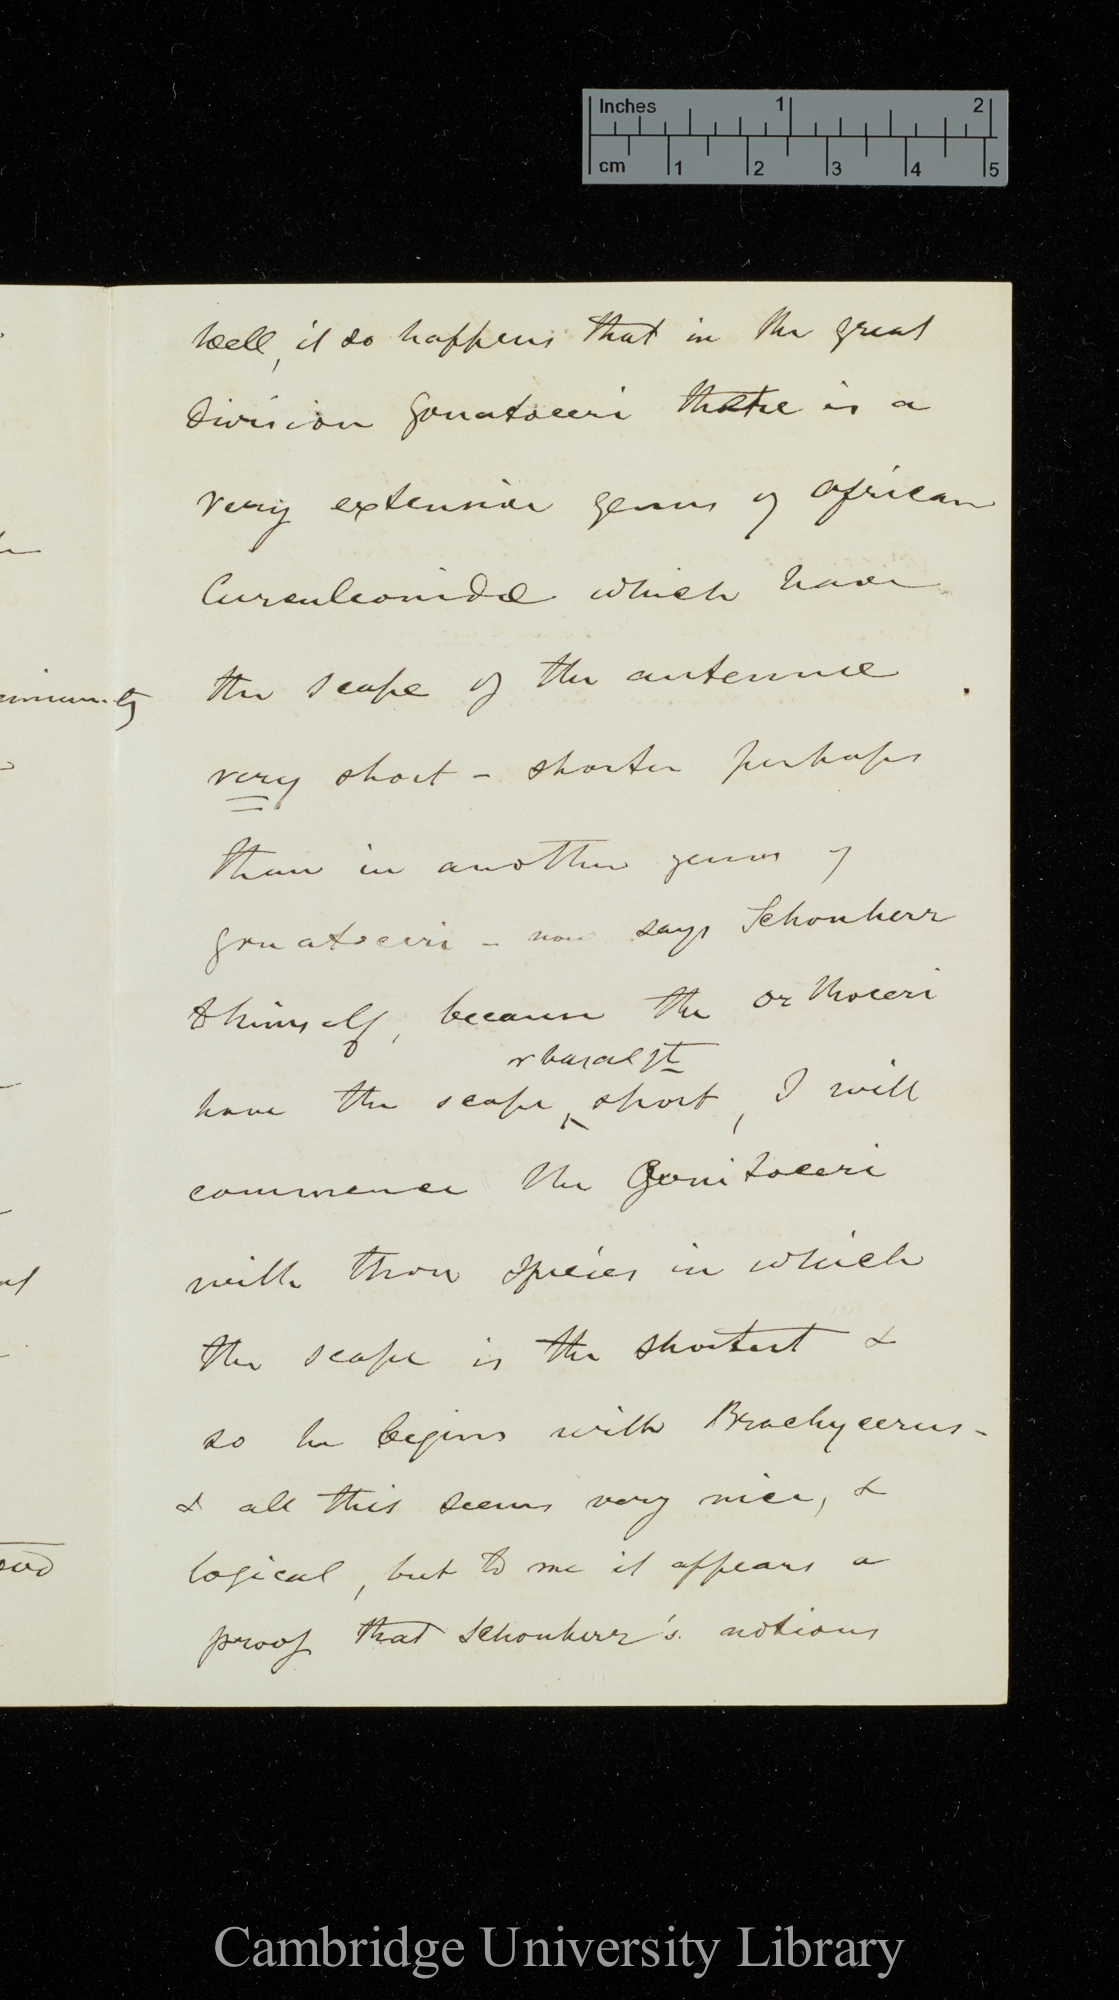 Inches 1 2
cm 1 2 3 4 5
Well, it so happens that in the great
division Gonatoceri there is a
very extensive genus of African
Curculeonidæ which have
the scape of the antennæ
very short – shorter perhaps
than in another genus of
Gonatoceri – now says Schonherr
to himself, because the orthoceri
or basal jt
have the scape short, I will
commence the Gonitoceri
with those species in which
the scape is the shortest &
so he begins with Brachycerus –
& all this seems very nice, &
logical, but to me it appears a
proof that Schonherr's notions
Cambridge University Library